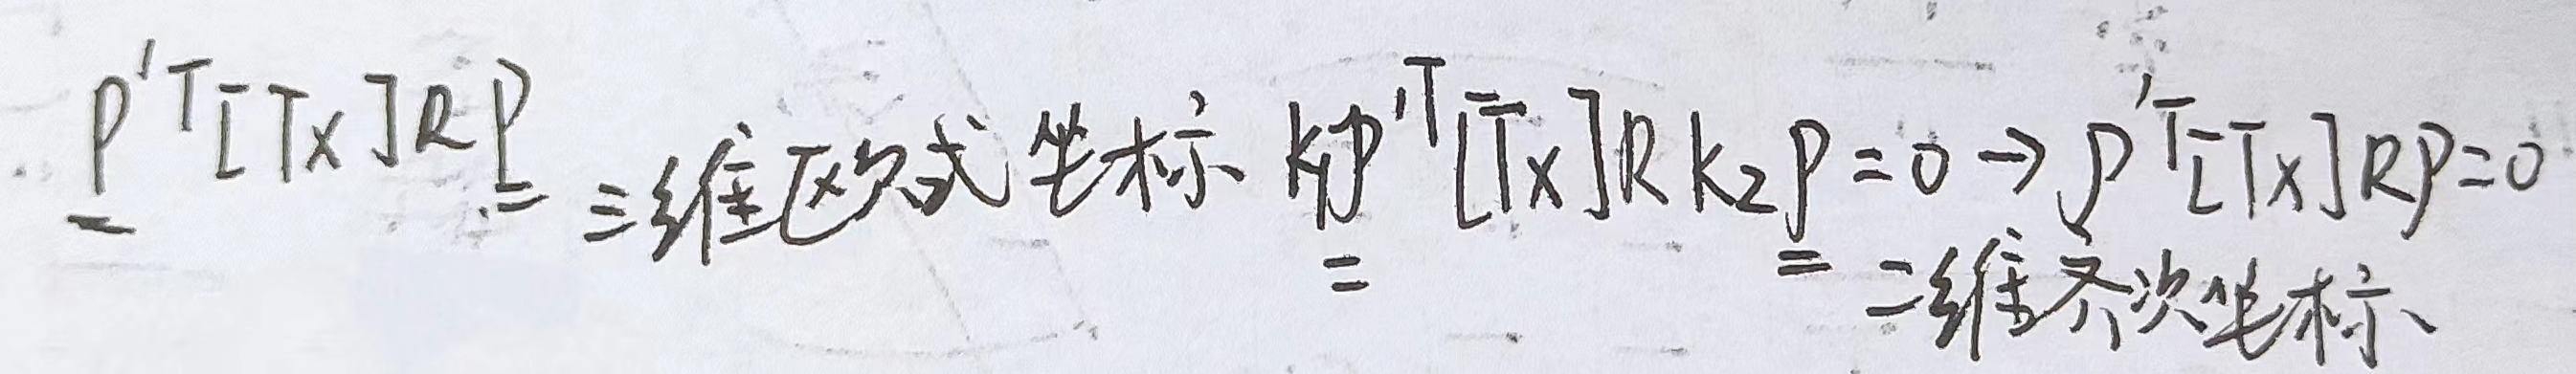 P'ᵀ[Tx]RP 三维欧式坐标 k₁p'ᵀ[Tx]Rk₂p=0→p'ᵀ[Tx]Rp=0
二维齐次坐标